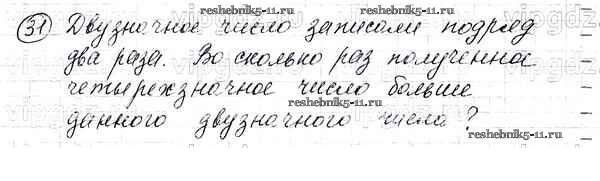 reshebnik5-11.ru
31 Двузначное число записали подряд
два раза. Во сколько раз полученное
четырехзначное число больше
reshebnik5-11.ru
данного двузначного числа?
reshebnik5-11.ru